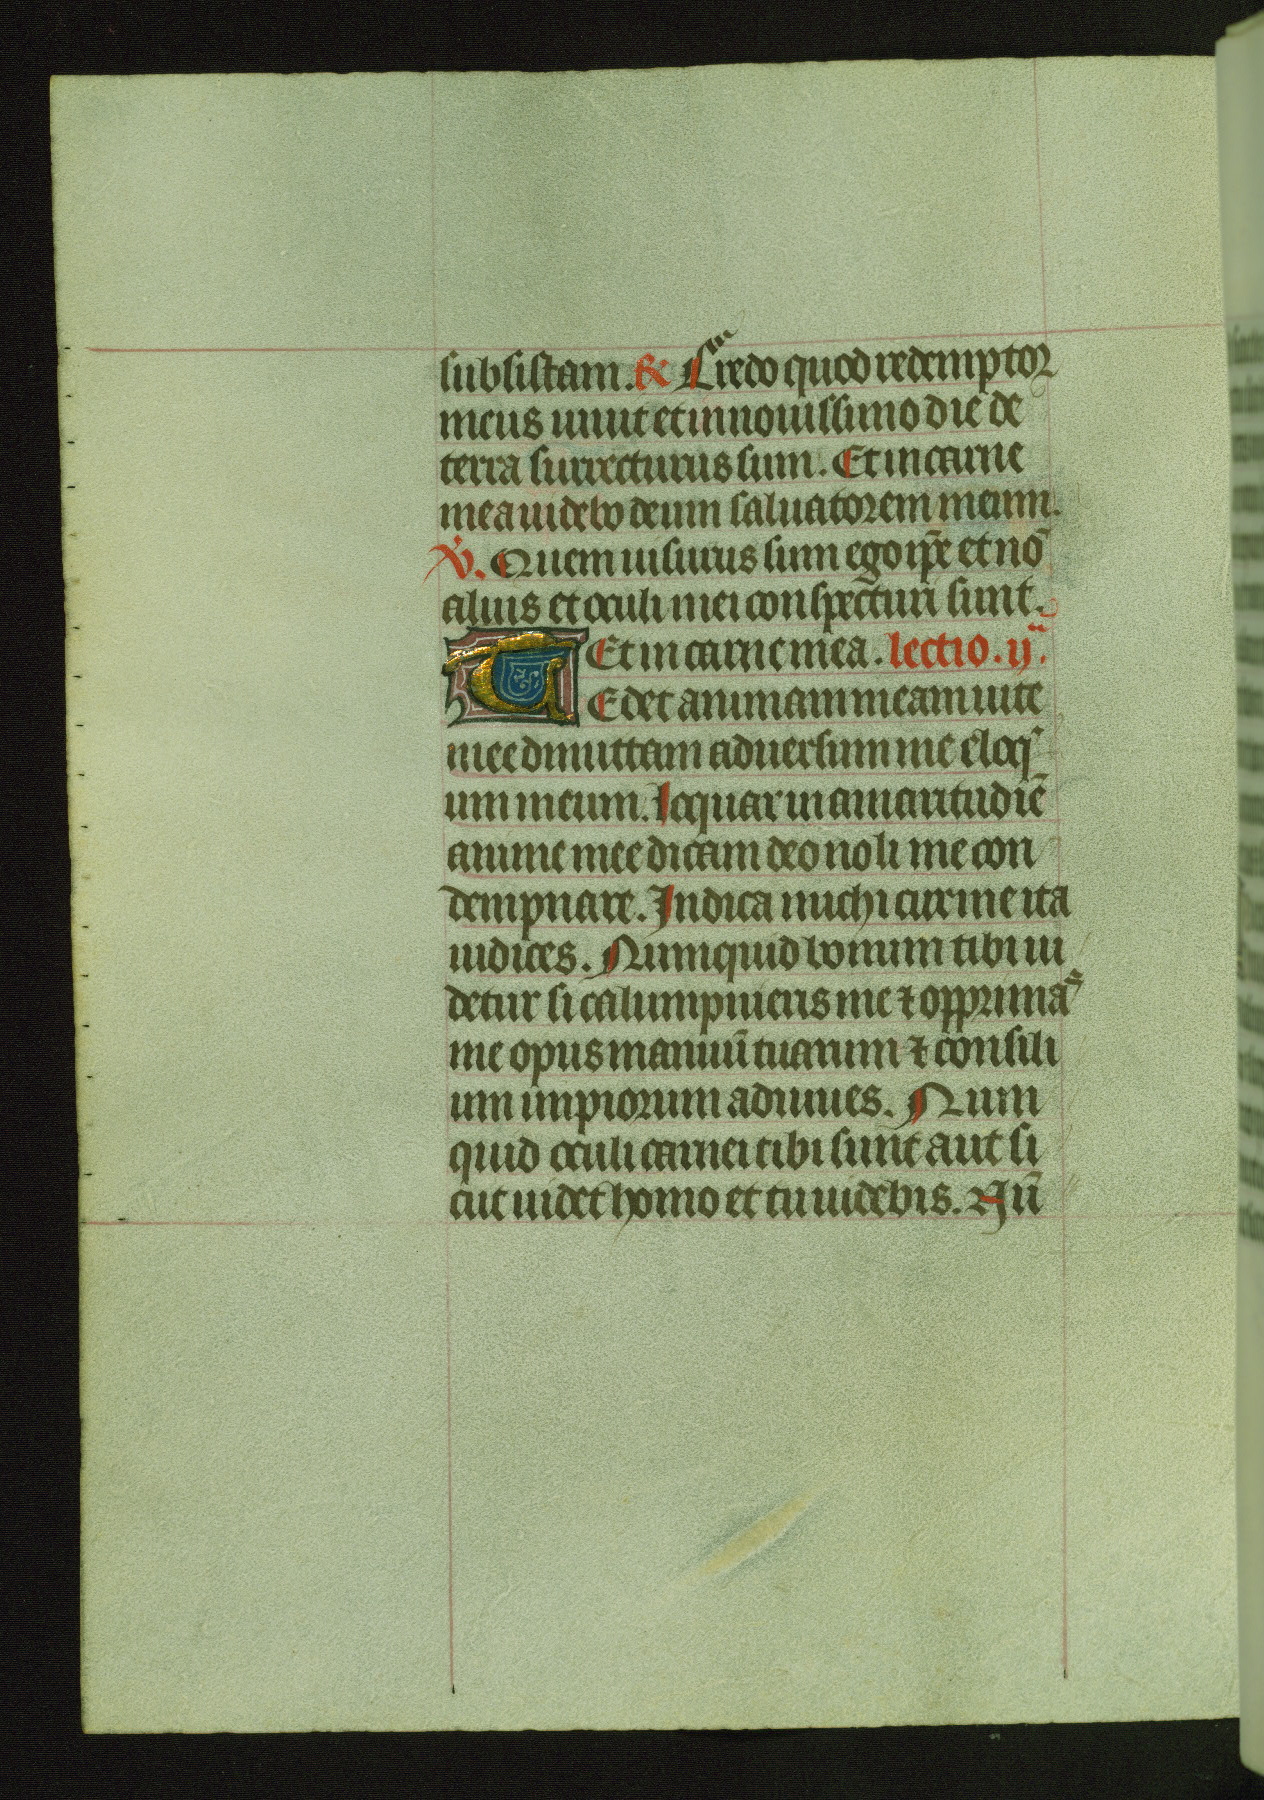 subsistam. R Credo quod redemptor
meus uiuit et in nouissimo die de
terra surrecturus sum. Et in carne
mea uidebo deum saluatorem meum.
V̇. Quem uisurus sum ego ip̄e et nō
alius et oculi mei conspecturi sunt.
Et in carne mea. lectio. ij.
TEdet animam meam uite
mee dimittam aduersum me eloq̄
um meum. loquar in amaritudiē
anime mee dicam deo noli me con
dempnare. Indica michi cur me ita
iudices. Numquid bonum tibi ui
detur si calumpnieris me ⁊ opprimaˢ
me opus manuū tuarum ⁊ consili
um impiorum adiuues. Num
quid oculi carnei tibi sunt aut si
cut uidet homo et tu uidebis. Nū